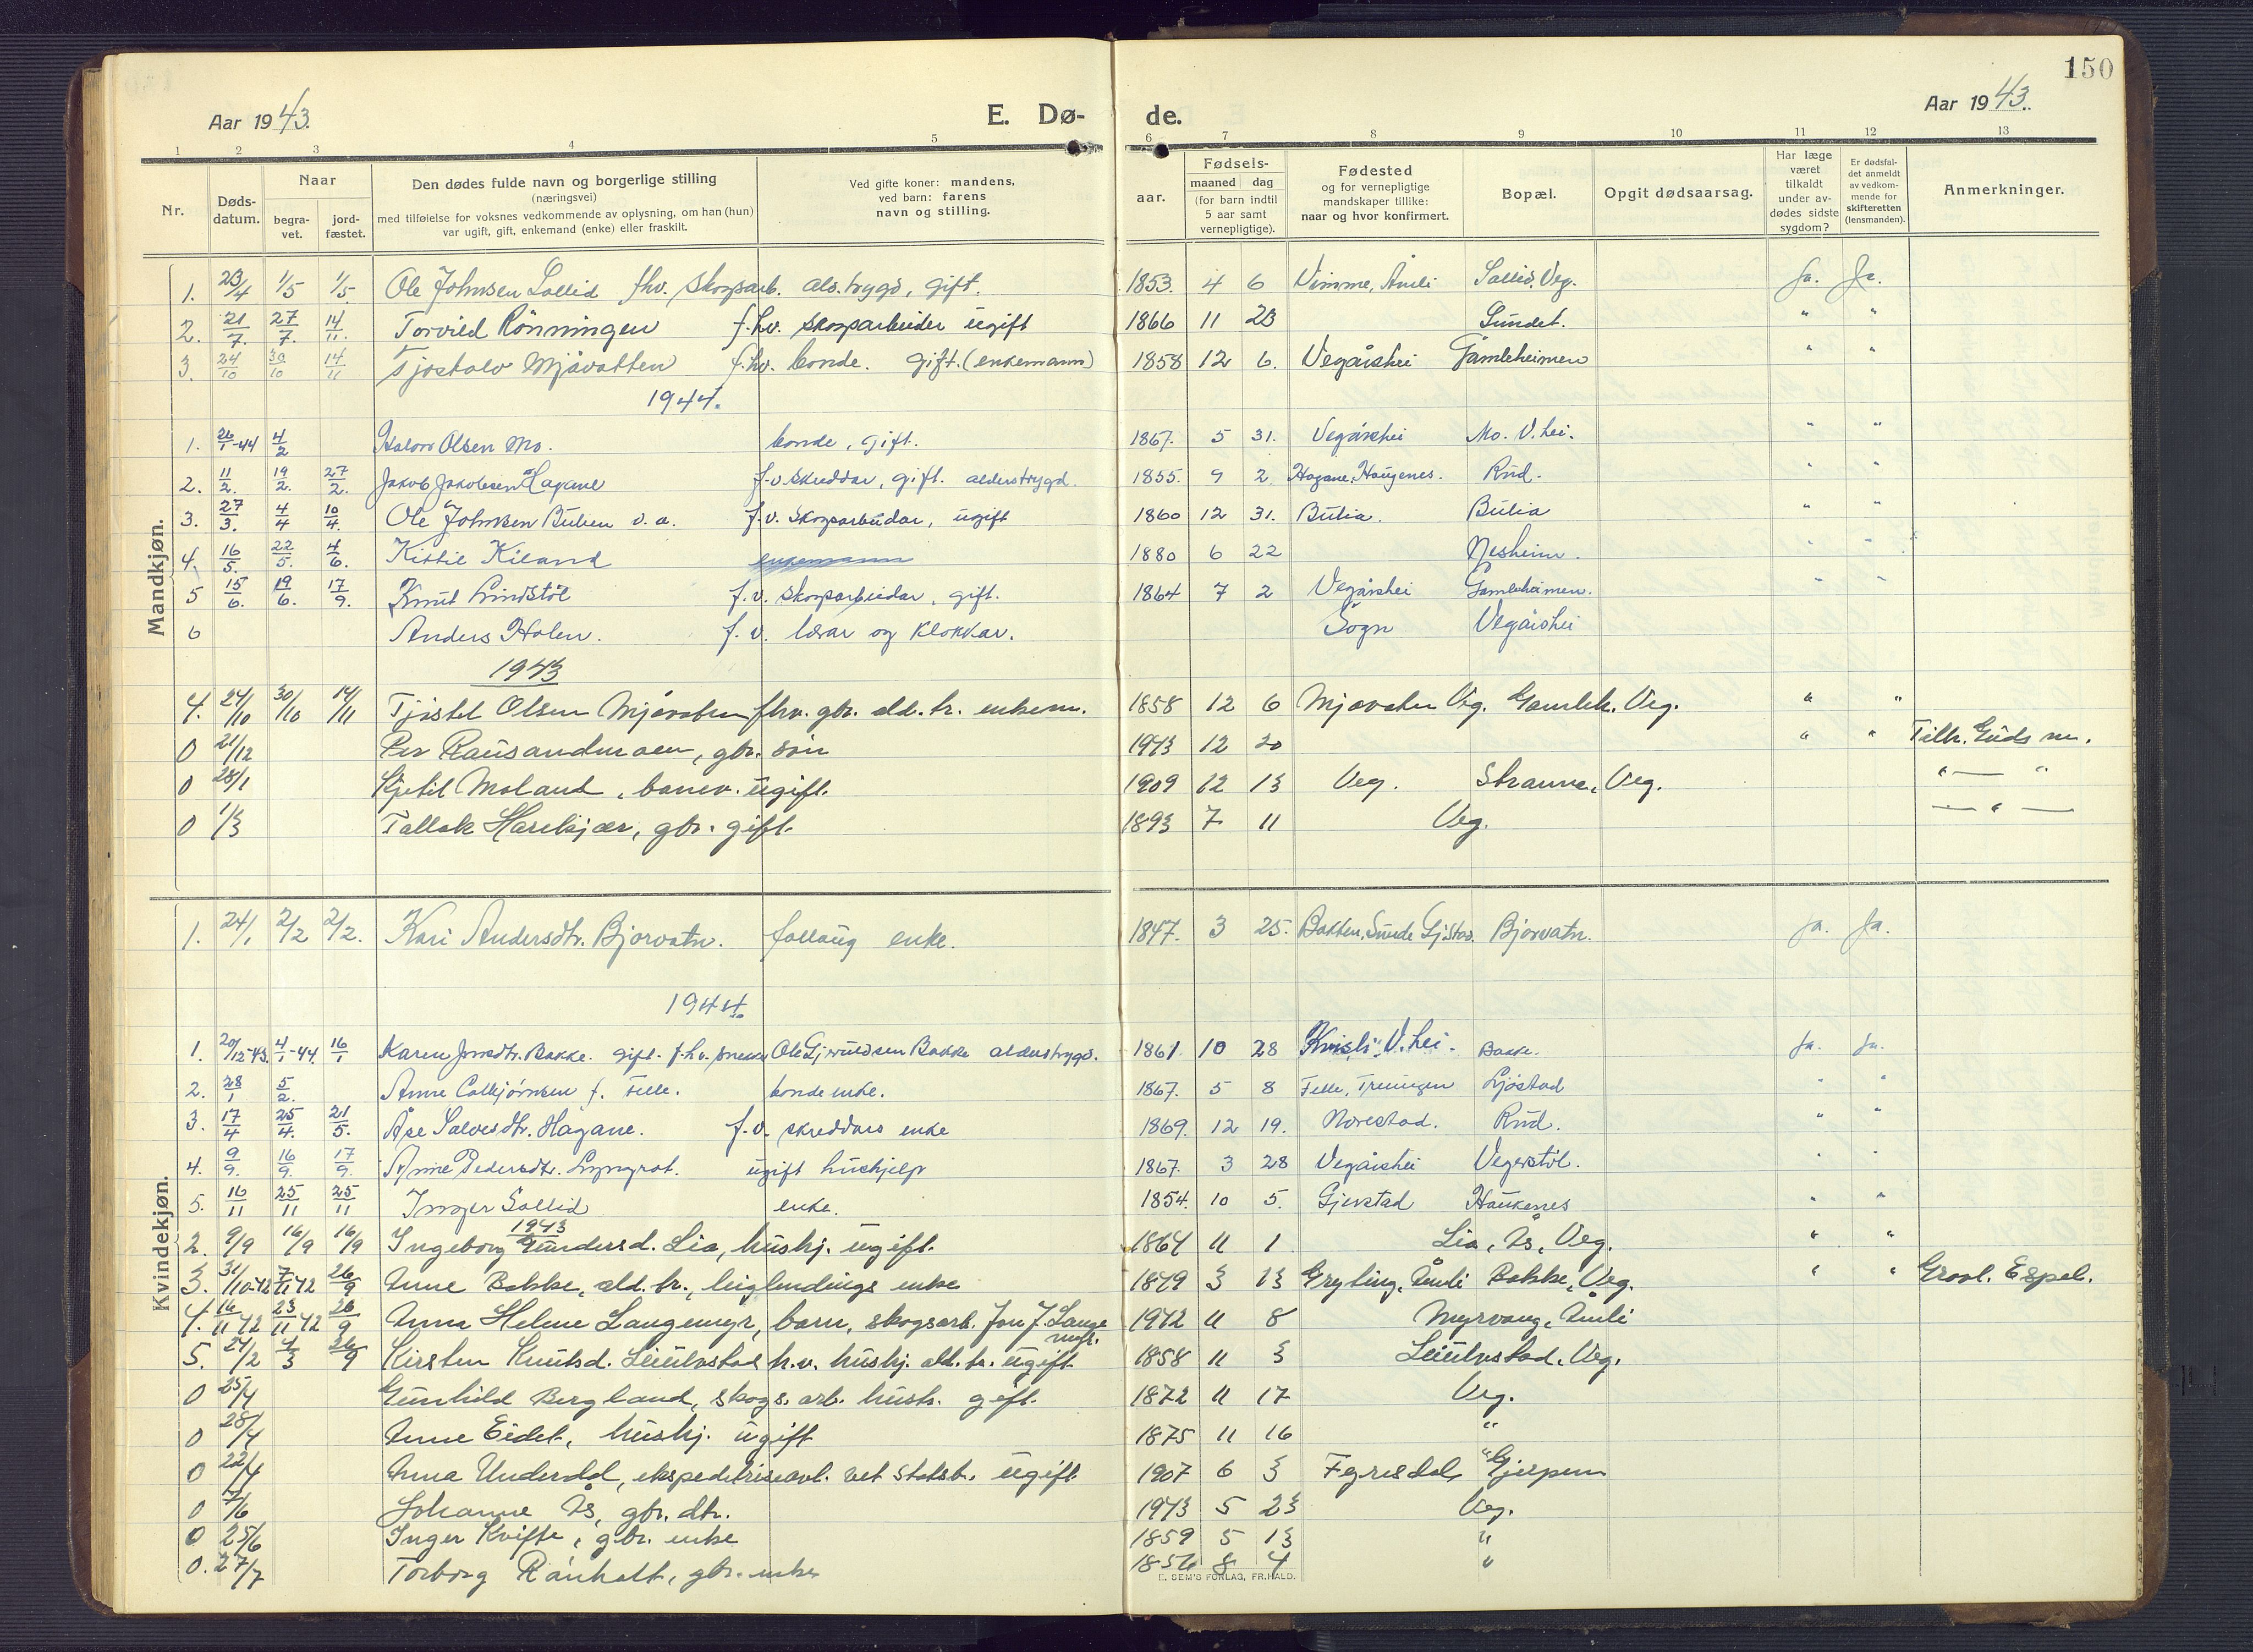 150
Aar 1943.
E. Dø-
de.
Aar 1943.
1 2 3 4 5 6 7 8 9 10 11 12 13
Nr.
Døds-
datum.
Naar
begra-
vet.
jord-
fæstet.
Den dødes fulde navn og borgerlige stilling
(næringsvei)
med tilføielse for voksnes vedkommende av oplysning, om han (hun)
var ugift, gift, enkemand (enke) eller fraskilt.
Ved gifte koner: mandens,
ved barn: farens
navn og stilling.
aar.
Fødsels-
maaned dag
(for barn indtil
5 aar samt
vernepligtige).
Fødested
og for vernepligtige
mandskaper tillike:
naar og hvor konfirmert.
Bopæl.
Opgit dødsaarsag.
Har læge
været
tilkaldt
under av-
dødes sidste
sygdom?
Er dødsfal-
det anmeldt
av vedkom-
mende for
skifteretten
(lensmanden).
Anmerkninger.
Mandkjøn.
1. 23/4 1/5 1/5 Ole Johnsen Sollid fhv. skogsarb. als.trygd, gift. 1853. 4 6 Vimme, Åmli Sollid, Veg. Ja. Ja.
2. 21/7. 27/7. 14/11. Torvild Rönningen f.hv. skogsarbeider ugift 1866 11 23 Sundet. " "
3. 24/10 30/10 14/11 Tjostolv Mjåvatten f.hv. bonde. gift. (enkemann) 1858 12 6. Vegårshei Gamleheimen " "
1944.
1. 26/1-44 4/2 Halvor Olsen Mo. bonde, gift. 1867. 5 31. Vegårshei Mo. V.hei. " "
2. 11/2. 19/2. 27/2. Jakob Jakobsen Hagane f.v. skreddar, gift. alderstrygd. 1855. 9 2 Hagane, Haugenes. Rud. " "
3. 27/3. 4/4 10/4. Ole Johnsen Bulien v.a. f.v. skogsarbudar, ugift 1860 12 31. Bulia. Bulia " "
4. 16/5. 22/5. 4/6. Kittil Kiland enkemann 1880 6 22 Nesheim. " "
5 15/6. 19/6. 17/9. Knut Lindstöl f.v. skogsarbeidar, gift. 1864 7 2 Vegårshei Gamleheimen. " "
6 Anders Holen. f.v. lærar og klokkar. Sogn Vegårshei
1943
4. 24/10 30/10 14/11 Tjøstel Olsen Mjøvatn fhv. gbr. ald.tr. enkem. 1858 12 6 Mjøvatn Veg. Gamleh. Veg. " "
0 21/12 Per Rausandmoen, gbr. søn 1943 12 20 " " Tilh. Guds m.
0 28/1 Kjetil Moland, banev. ugift. 1909 12 13 Veg. Straume, Veg. " — "
0 1/3 Tallak Harekjær, gbr. gift. 1893 7 11 Veg. — " —
Kvindekjøn.
1. 24/1 2/2 2/2. Kari Andersdtr. Bjorvatn. follaug enke. 1847. 3 25. Bakken, Sunde Gjstad. Bjorvatn. Ja. Ja.
1944.
1. 20/12-43. 4/1-44. 16/1 Karen Jonsdtr. Bakke. gift. f.hv. Ole Bakke alderstrygd. 1861. 10 28 V.hei. Bakke. Ja. Ja.
2. 28/1 5/2. Anne f. Felle. bonde enke. 1867. 5 8 Felle, Treungen Ljöstad " "
3. 17/4 25/4. 21/5. Åse Salvesdtr. Hagane. f.v. skreddars enke 1869. 12 19. Norestad. Rud. " "
4. 9/9. 16/9. 17/9. Anne Pedersdtr. Lyngrot. ugift hushjelp 1867. 3 28 Vegårshei Vegerstöl. " "
5. 16/11 25/11 25/11 Inger Sollid enke. 1854. 10 5. Gjerstad Haukenes " "
1943
2. 9/9 16/9 16/9 Ingeborg Gundersd. Lia, hushj. ugift. 1864 11 1 Lia, Ås, Veg. " "
3. 31/10-42 7/11-42 26/9 Anne Bakke, ald.tr., leiglendings enke 1849 3 13 Gryting, Åmli Bakke, Veg. " " Gravl. Espel.
4. 16/11 42 23/11 42 26/9 Anna Helene Langemyr, barn, skogsarb. Jon J. Lange
myr. 1942 11 8 Myrvang, Åmli
5. 24/2 4/3 26/9 Kirsten Knutsd. Leiulvstad h.v. hushj. ald.tr. ugift 1858 11 3 Leiulvstad, Veg.
0 25/4 Gunhild Bergland, skogs.arb. hustr. gift. 1872 11 17 Veg.
0 28/4 Anne Eidet, hushj. ugift 1875 11 16 "
0 22/4 Anna Underdal, ekspeditrise ugift 1907 6 3 Fyresdal Gjerpen
0 7/6 Johanne Ås, gbr. dtr. 1943 5 23 Veg.
0 25/6 Inger Kvifte, gbr. enke 1859 5 13 "
0. 27/7 Torborg Rånholt, gbr. enke 1856 8 4 "
E. SEM'S FORLAG, FR.HALD.